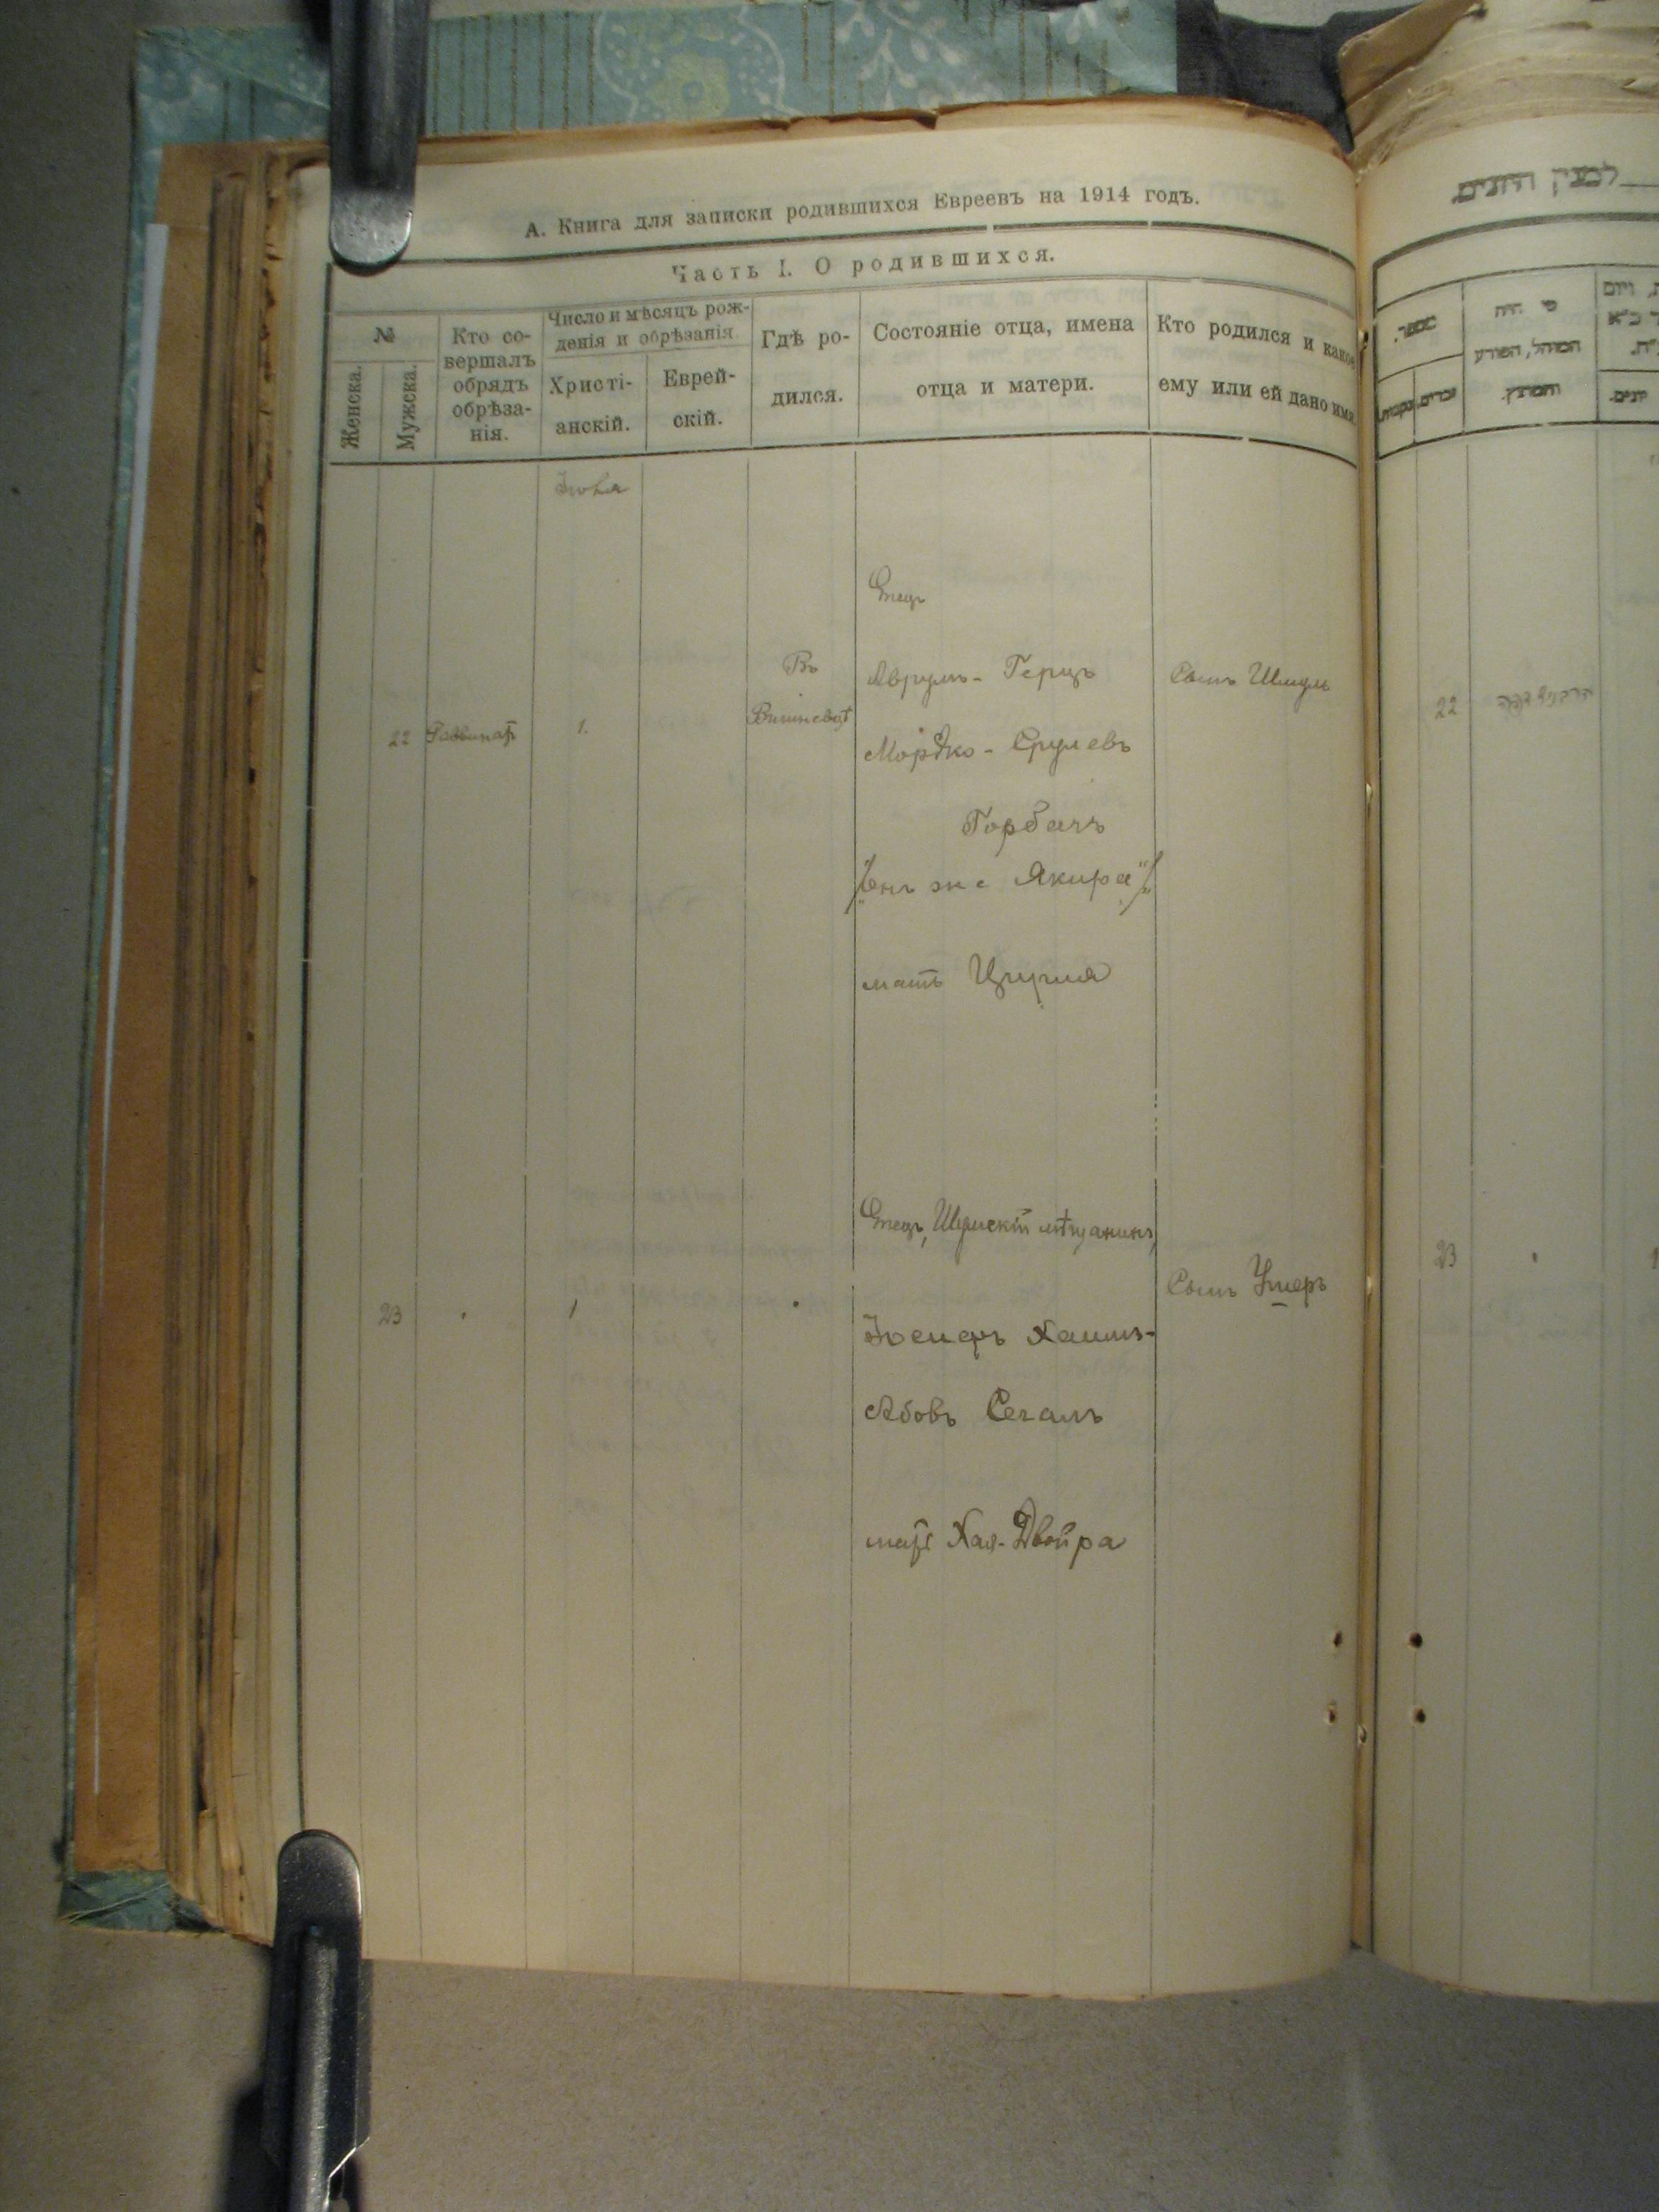 А. Книга для записки родившихся Евреевъ на 1914 годъ.
Часть I. О родившихся.
№
Женска.
Мужска.
Кто со-
вершалъ
обрядъ
обрѣза-
нія.
Число и мѣсяцъ рож-
денія и обрѣзанія.
Христі-
анскій.
Еврей-
скій.
Гдѣ ро-
дился.
Состояніе отца, имена
отца и матери.
Кто родился и какое
ему или ей дано имя.
Отецъ
22
1.
Въ
Вишневцѣ
Аврумъ- Герцъ
Мордко- Срулевъ
Горбачъ
/„онъ же Якира“/
мать
Сынъ Шмуль
23
1
Отецъ, Шумскій мѣщанинъ,
Хаимъ-
Абовъ Сегалъ
мать Хая-Двойра
Сынъ Ушеръ
למנין היונים
מספר.
נקבות.
זכרים.
מי היה
המוהל, הפורע
והמוצץ.
יונים.
22
23